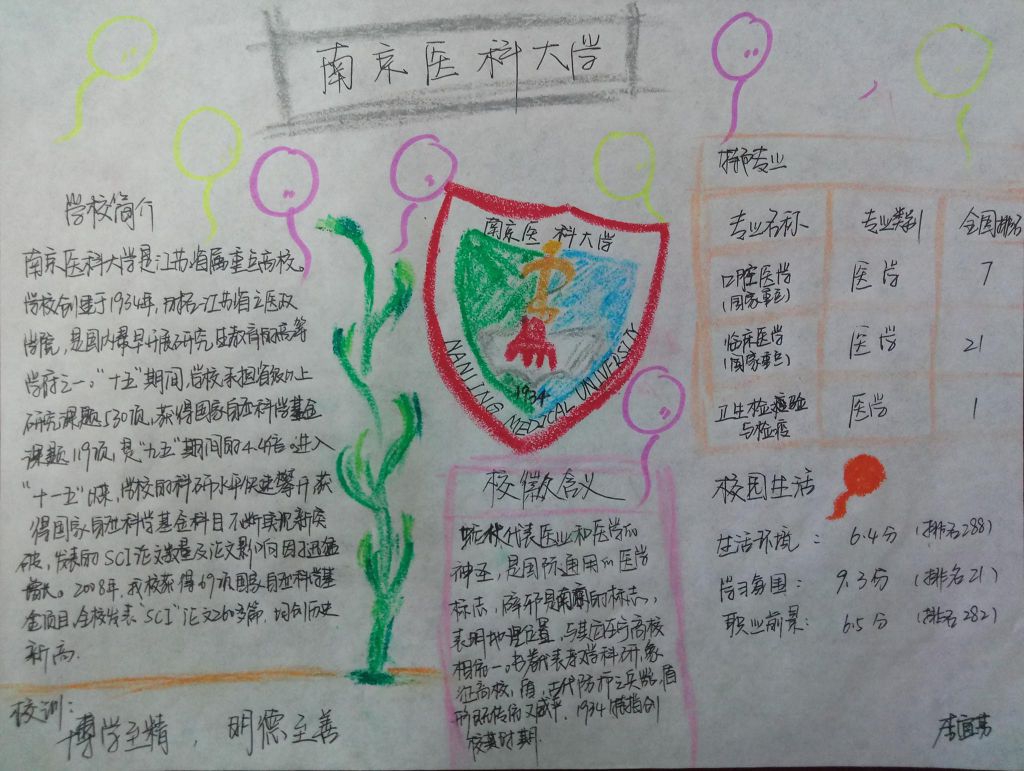 南京医科大学
学校简介
南京医科大学是江苏省属重点高校。
学校创建于1934年,前名江苏省立医政
学院,是国内最早开展研究生教育的高等
学府之一。"十五"期间,学校承担省级以上
研究课题530项,获得国家自然科学基金
课题119项,是"九五"期间的4.4倍。进入
"十一五"以来,学校的科研水平快速攀升,获
得国家自然科学基金科目不断实现新突
破,发表的SCI论文数量及论文影响因子迅猛
增长。2008年,我校获得69项国家自然科学基
金项目,全校发表"SCI"论文260多篇,均创历史
新高.
校训:
博学至精,明德至善
南京医科大学
1934
NANJING MEDICAL UNIVERSITY
校徽含义
蛇杖代表医业和医学的
神圣,是国际通用的医学
标志,辟邪是南京的标志,
表明地理位置,与其它医学高校
相区一。书卷代表着学科研,象
征高校,盾,古代防御之兵器,盾
形既传统又威严.1934指创
校其时期.
推荐专业
专业名称 专业类别 全国排名
口腔医学 医学 7
(国家重点)
临床医学 医学 21
(国家重点)
卫生检验 医学 1
与检疫
校园生活
生活环境: 6.4分 (排名288)
学习氛围: 9.3分 (排名21)
职业前景: 6.5分 (排名282)